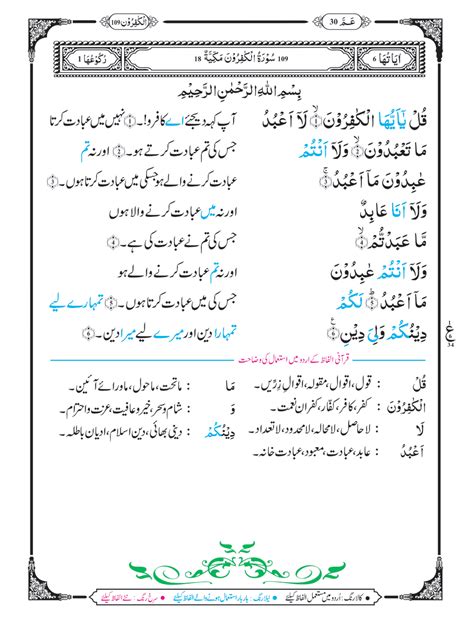 عَـمَّ 30
اَلْكٰفِرُوْنَ 109
اٰيَاتُهَا 6
109 سُوْرَةُ الْكٰفِرُوْنَ مَكِّيَّةٌ 18
رُكُوْعُهَا 1
بِسْمِ اللهِ الرَّحْمٰنِ الرَّحِيْمِ
قُلْ يٰۤاَيُّهَا الْكٰفِرُوْنَ ۙ﴿۱﴾ لَاۤ اَعْبُدُ
آپ کہہ دیجئے اے کافرو!۔﴿۱﴾ نہیں میں عبادت کرتا
مَا تَعْبُدُوْنَ ۙ﴿۲﴾ وَلَاۤ اَنْتُمْ
جس کی تم عبادت کرتے ہو۔﴿۲﴾ اور نہ تم
عٰبِدُوْنَ مَاۤ اَعْبُدُ ۚ﴿۳﴾
عبادت کرنے والے ہو جسکی میں عبادت کرتا ہوں۔﴿۳﴾
وَلَاۤ اَنَا عَابِدٌ
اور نہ میں عبادت کرنے والا ہوں
مَّا عَبَدْتُّمْ ۙ﴿۴﴾
جس کی تم نے عبادت کی ہے۔﴿۴﴾
وَلَاۤ اَنْتُمْ عٰبِدُوْنَ
اور نہ تم عبادت کرنے والے ہو
مَاۤ اَعْبُدُ ؕ﴿۵﴾ لَكُمْ
جس کی میں عبادت کرتا ہوں۔﴿۵﴾ تمہارے لیے
دِيْنُكُمْ وَلِيَ دِيْنِ ۠﴿۶﴾
تمہارا دین اور میرے لیے میرا دین۔﴿۶﴾
قرآنی الفاظ کے اردو میں استعمال کی وضاحت
قُلْ : قول، اقوال، مقولہ، اقوالِ زرّیں۔
مَا : ماتحت، ماحول، ماورائے آئین۔
الْكٰفِرُوْنَ : کفر، کافر، کفّار، کفرانِ نعمت۔
وَ : شام و سحر، خیر و عافیت، عزت و احترام۔
لَا : لاحاصل، لامحالہ، لامحدود، لاتعداد۔
دِيْنُكُمْ : دینی بھائی، دین اسلام، ادیانِ باطلہ۔
اَعْبُدُ : عابد، عبادت، معبود، عبادت خانہ۔
کالا رنگ: اُردو میں مستعمل الفاظ کیلئے
نیلا رنگ: بار بار استعمال ہونے والے الفاظ کیلئے
سرخ رنگ: نئے الفاظ کیلئے